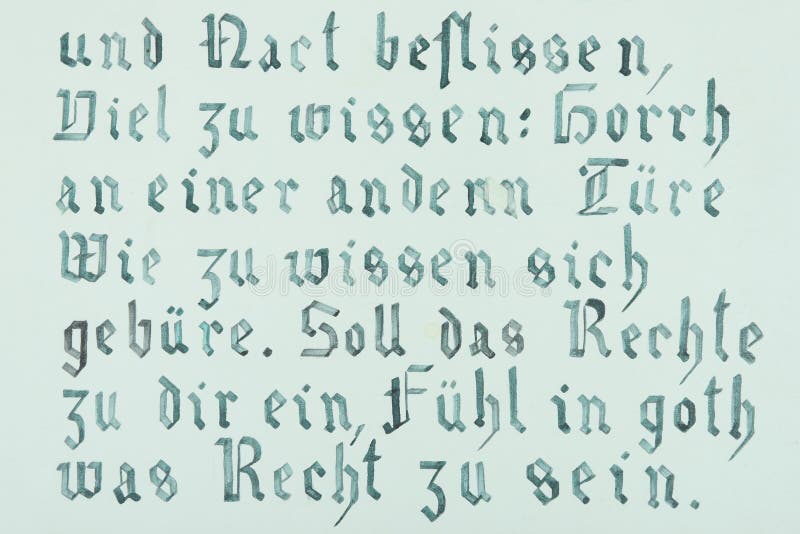 und Nact beflissen,
Viel zu wissen: Horrh
an einer andenn Türe
Wie zu wissen sich
gebüre. Soll das Rechte
zu dir ein, Fühl in goth
was Recht zu sein.